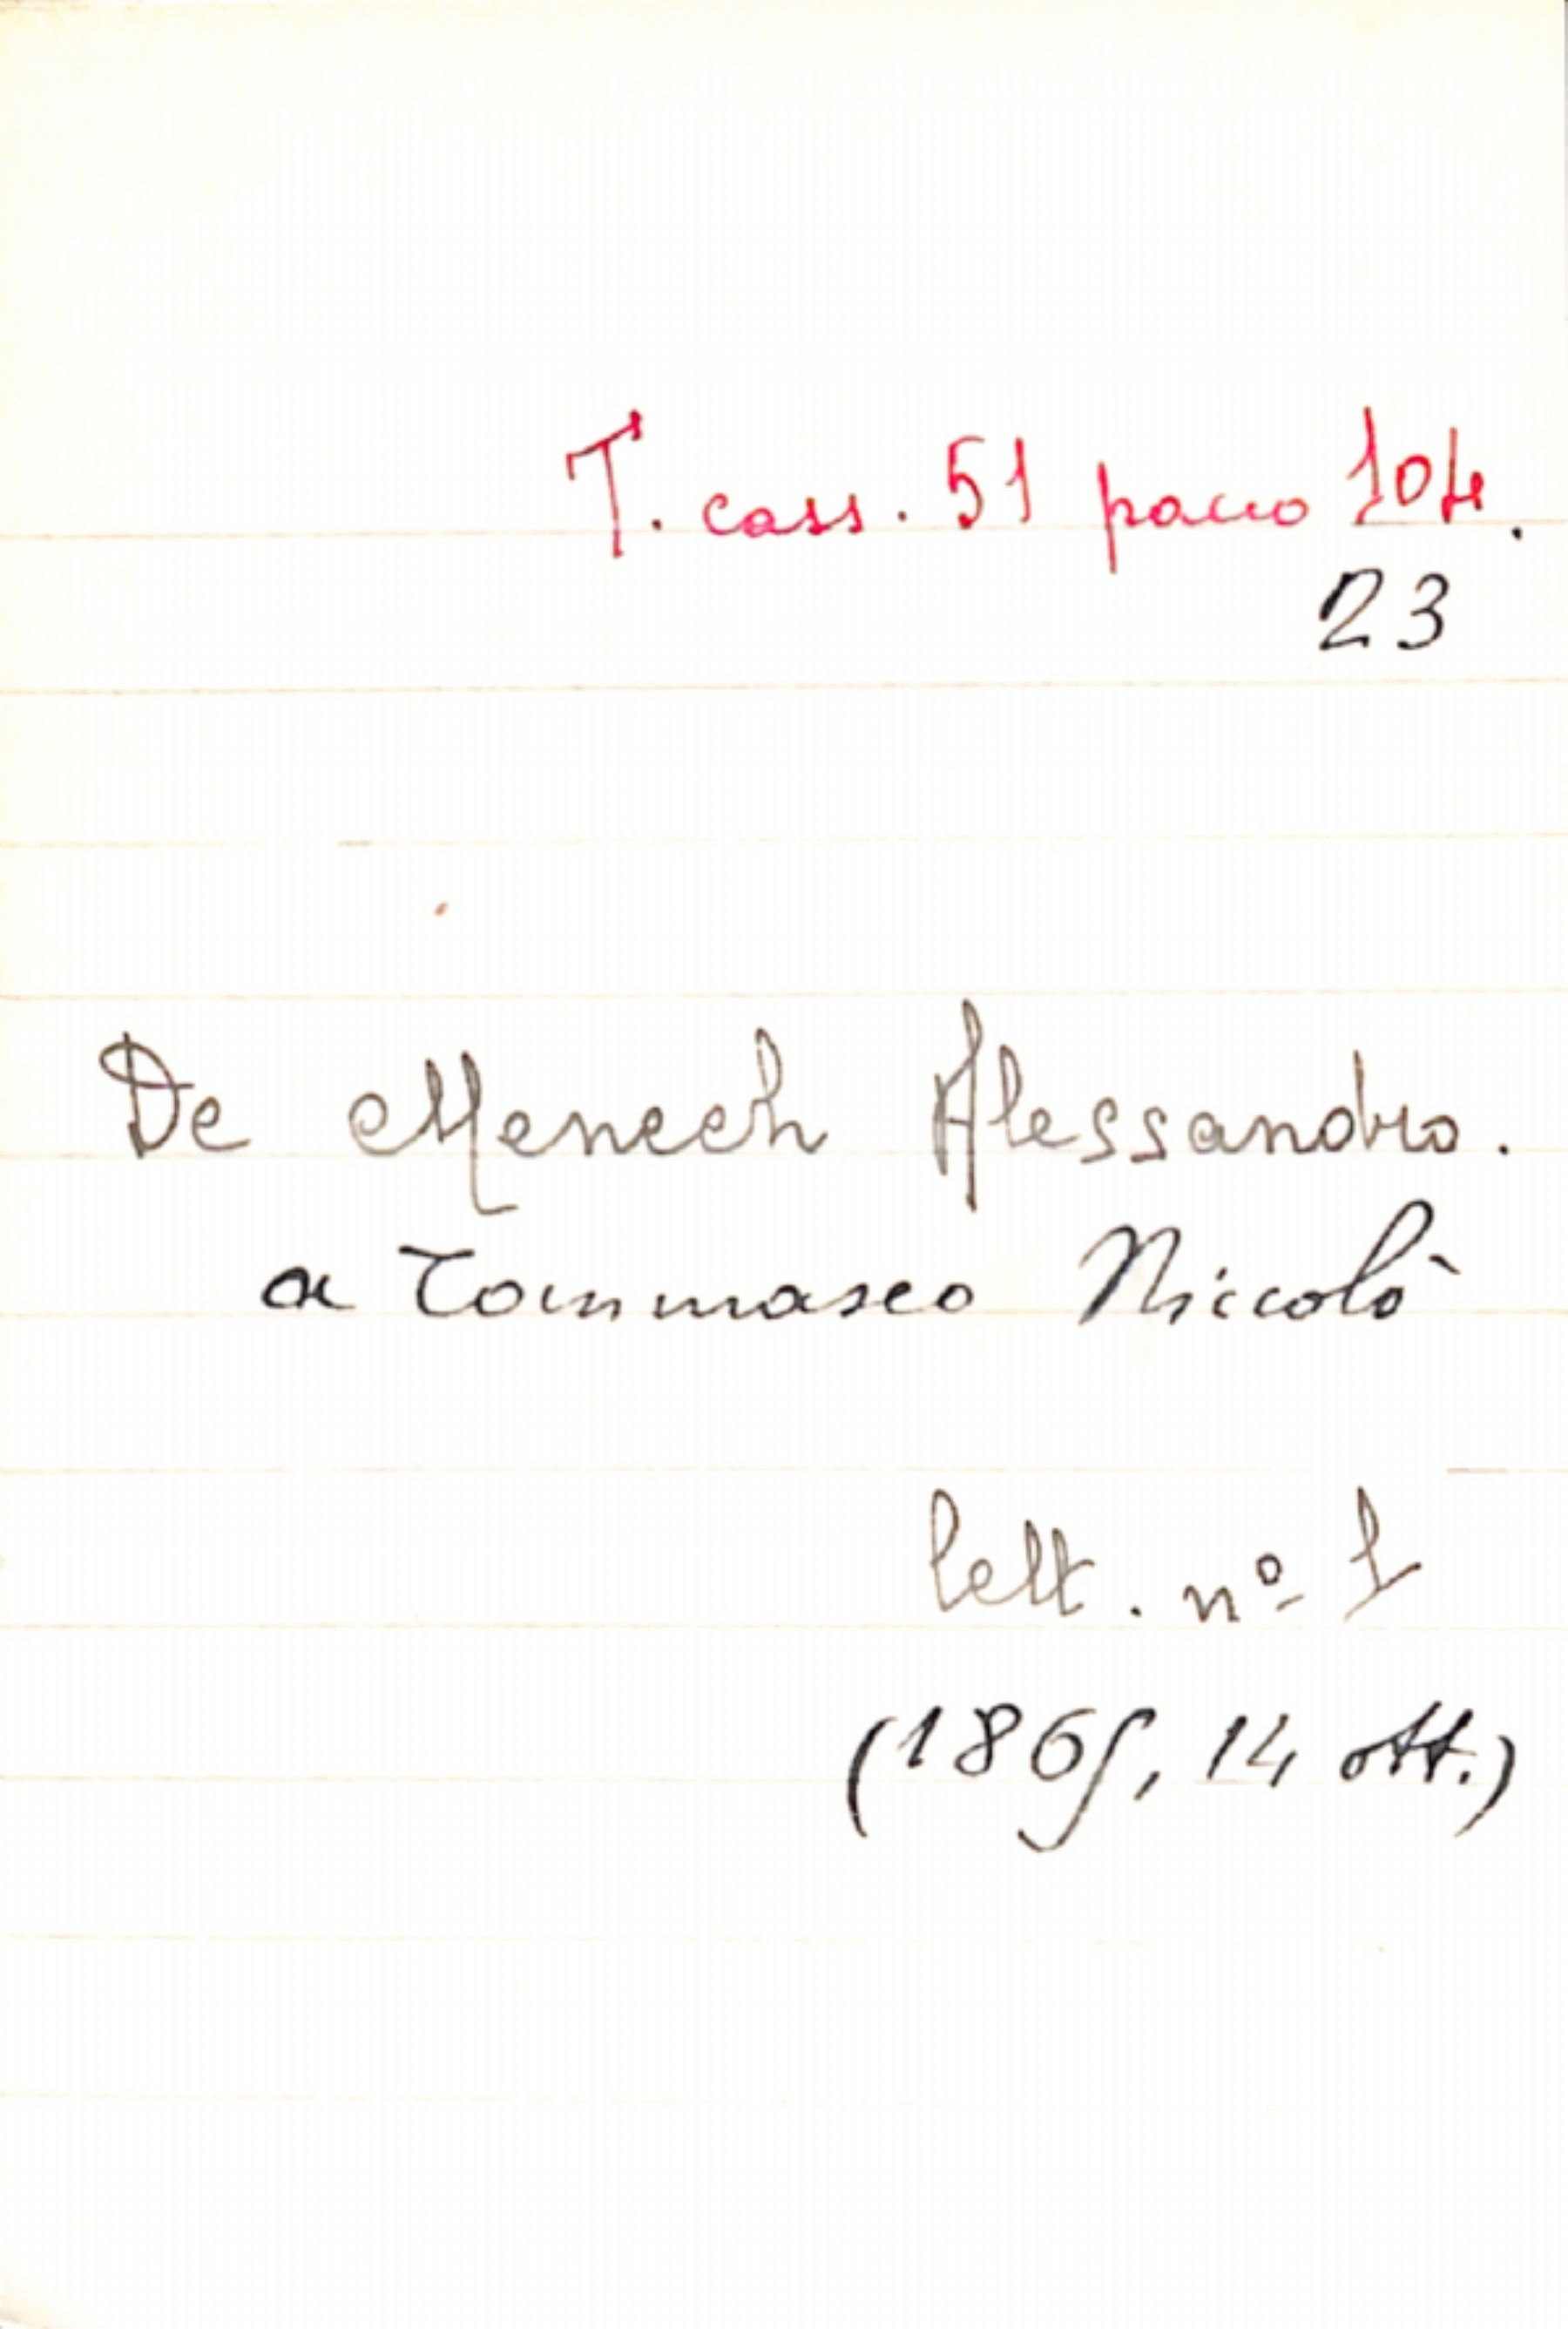 T. cass. 51 pacco 104.
23
De Menech Alessandro.
a Tommaseo Niccolò
lett. nº 1
(1865, 14 ott.)